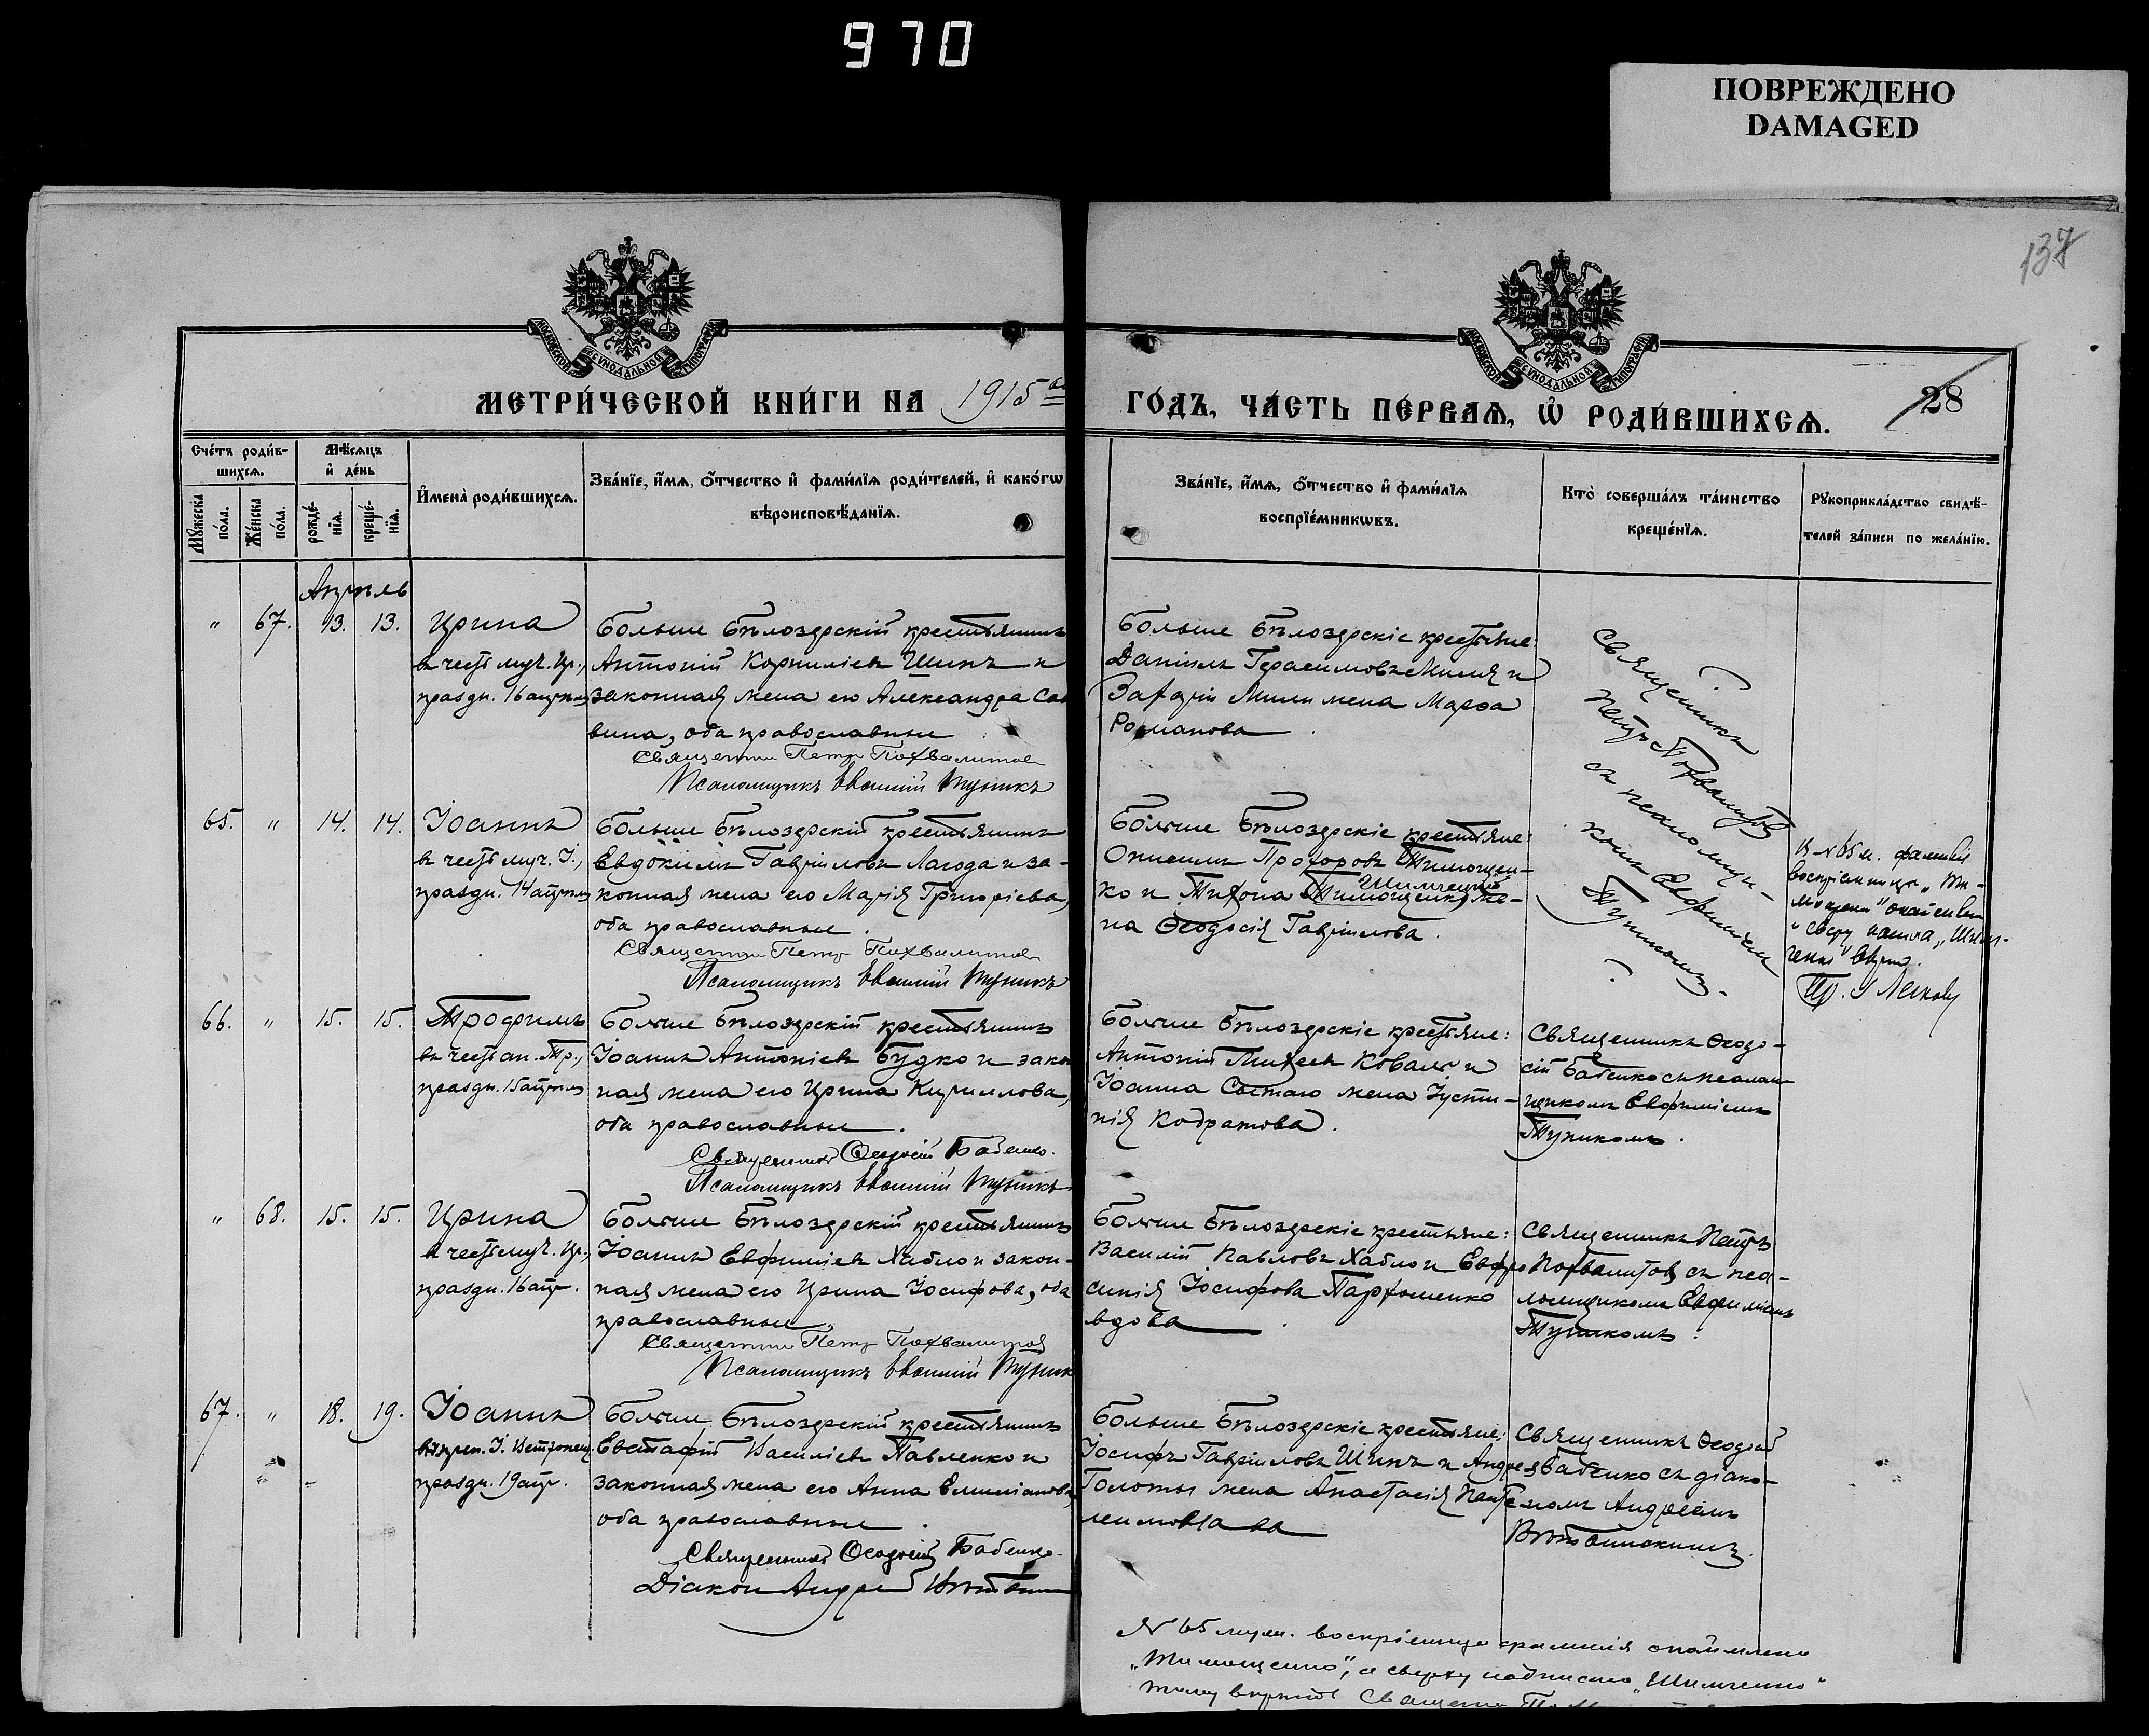 970
ПОВРЕЖДЕНО
DAMAGED
137
МОСКОВСКОЙ СУНОДАЛЬНОЙ ТИПОГРАФІИ
МОСКОВСКОЙ СУНОДАЛЬНОЙ ТИПОГРАФІИ
МЕТРИ́ЧЕСКОЙ КНИ́ГИ НА 1915
ГО́ДЪ, ЧА́СТЬ ПЕ́РВАѦ, Ѡ҆ РОДИ́ВШИХСѦ.
28
Сче́тъ роди́в-
шихсѧ.
Мѣ́сѧцъ
и҆ де́нь
Мꙋ́жеска
по́ла.
Же́нска
по́ла.
рожде́-
нїѧ.
креще́-
нїѧ.
И҆мена̀ роди́вшихсѧ.
Зва́нїе, и҆́мѧ, ѻ҆́тчество и҆ фами́лїѧ роди́телей, и҆ како́гѡ
вѣроисповѣ́данїѧ.
Зва́нїе, и҆́мѧ, ѻ҆́тчество и҆ фами́лїѧ
воспрїе́мникѡвъ.
Кто̀ соверша́лъ та́инство
креще́нїѧ.
Рꙋкоприкла́дство свидѣ́-
телей за́писи по жела́нїю.
Апрѣль
" 67. 13. 13.
Ирина
въ честь муч. Ир.,
праздн. 16 апрѣля
Больше Бѣлозерскій крестьянинъ
Антоній Корниліевъ Шинъ и
законная жена его Александра Сав
вина, оба православные
Священникъ Петръ Похвалитовъ
Псаломщикъ Евфимій Тупикъ
Больше Бѣлозерскіе крестьяне:
Даніилъ Герасимовъ Миля и
Захарія Мили жена Марѳа
Романова
Священникъ
Петръ Похвалитовъ
съ псаломщи-
комъ Евфиміемъ
Тупикомъ.
65. " 14. 14.
Іоаннъ
въ честь муч. І.,
праздн. 14 апрѣля
Больше Бѣлозерскій крестьянинъ
Евдокимъ Гавріиловъ Лагода и за-
конная жена его Марія Григоріева,
оба православные.
Священникъ Петръ Похвалитовъ
Псаломщикъ Евфимій Тупикъ
Больше Бѣлозерскіе крестьяне:
Онисимъ Прохоровъ Тимощен-
Шимченко
ко и Тихона Тимощенко же-
на Ѳеодосія Гавріилова.
В № 65 м. фамилія
воспріемницы „Ти-
мощенко"
сверху „Шим-
ченко" вѣрно.
66. " 15. 15.
Трофимъ
въ честь ап. Тр.,
праздн. 15 апрѣля
Больше Бѣлозерскій крестьянинъ
Іоаннъ Антоніевъ Будко и закон
ная жена его Ирина Кириллова,
оба православные.
Священникъ Ѳеодосій Бабенко.
Псаломщикъ Евфимій Тупикъ
Больше Бѣлозерскіе крестьяне:
Антоній Михеевъ Коваль и
Іоанна Сытаго жена Іусти-
нія Кодратова.
Священникъ Ѳеодо-
сій Бабенко съ псалом-
щикомъ Евфиміемъ
Тупикомъ.
" 68. 15. 15.
Ирина
въ честь муч. Ир.,
праздн. 16 апр.
Больше Бѣлозерскій крестьянинъ
Іоаннъ Евфиміевъ Хабло и закон-
ная жена его Ирина Іосифова, оба
православные.
Священникъ Петръ Похвалитовъ
Псаломщикъ Евфимій Тупик
Больше Бѣлозерскіе крестьяне:
Василій Павловъ Хабло и Евфро
синія Іосифова Пархоменко
вдова
Священникъ Петръ
Похвалитовъ съ пса-
ломщикомъ Евфиміемъ
Тупикомъ.
67. " 18. 19.
Іоаннъ
въ преп. І. Ветхопещ.
праздн. 19 апр.
Больше Бѣлозерскій крестьянинъ
Евстафій Василіевъ Павленко и
законная жена его Анна Емиліанова,
оба православные.
Священникъ Ѳеодосій Бабенко.
Діаконъ Андрей
Больше Бѣлозерскіе крестьяне:
Іосифъ Гавріиловъ Шинъ и Андрея
Голоты жена Анастасія Панте
леимонова
Священникъ Ѳеодосій
Бабенко съ діако-
номъ Андреемъ
№ 65 муж. воспріемницы фамилія
„Тимощенко", а сверху надписано „Шимченко"
тому вѣрить Священникъ